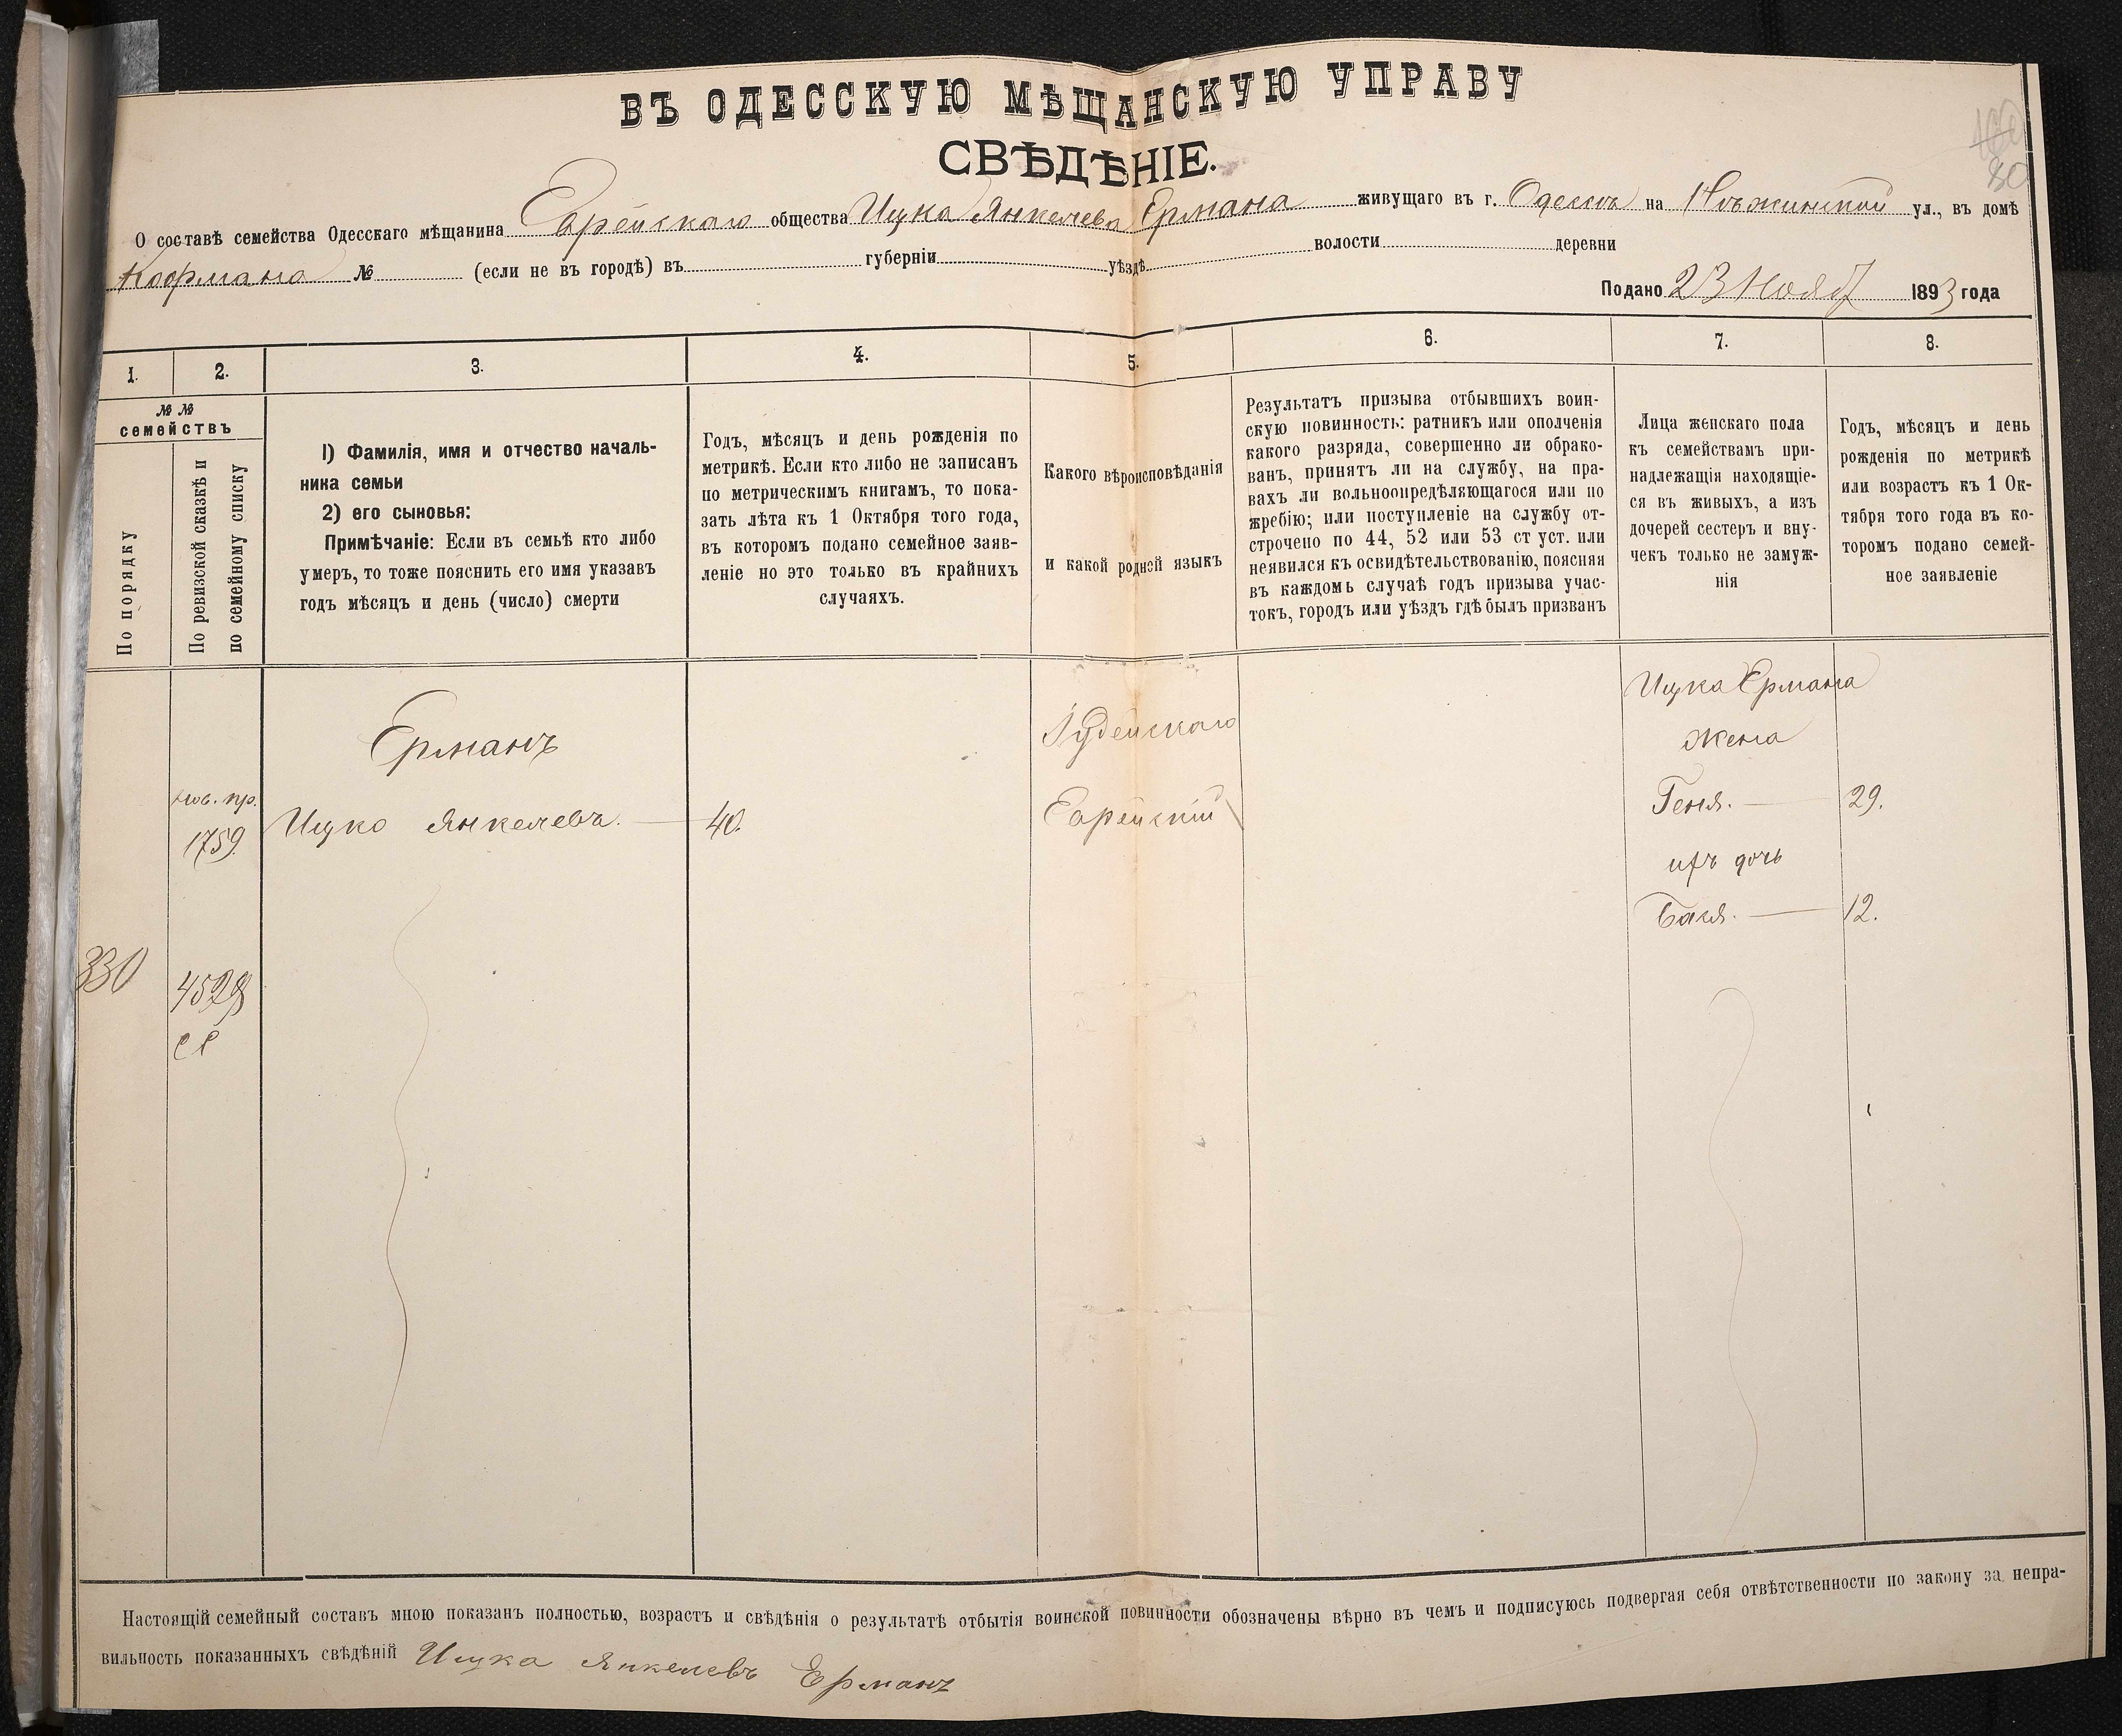 ВЪ ОДЕССКУЮ МѢЩАНСКУЮ УПРАВУ
СВѢДѢНІЕ.
80
О составѣ семейства Одесскаго мѣщанина Еврейскаго общества Ицка Янкелева Ермана живущаго въ г. Одессѣ на Нѣжинской ул., въ домѣ
Кофмана № (если не въ городѣ) въ губерніи уѣздѣ волости деревни
Подано 23 Нояб 1893 года
1. 2. 3. 4. 5. 6. 7. 8.
№ №
семействъ
По порядку
По ревизской сказкѣ и
по семейному списку
1) Фамилія, имя и отчество началь-
ника семьи
2) его сыновья:
Примѣчаніе: Если въ семьѣ кто либо
умеръ, то тоже пояснить его имя указавъ
годъ мѣсяцъ и день (число) смерти
Годъ, мѣсяцъ и день рожденія по
метрикѣ. Если кто либо не записанъ
по метрическимъ книгамъ, то пока-
зать лѣта къ 1 Октября того года,
въ которомъ подано семейное заяв-
леніе но это только въ крайнихъ
случаяхъ.
Какого вѣроисповѣданія
и какой родной языкъ
Результатъ призыва отбывшихъ воин-
скую повинность: ратникъ или ополченія
какого разряда, совершенно ли обрако-
ванъ, принятъ ли на службу, на пра-
вахъ ли вольноопредѣляющагося или по
жребію; или поступленіе на службу от-
строчено по 44, 52 или 53 ст уст. или
неявился къ освидѣтельствованію, поясняя
въ каждомь случаѣ годъ призыва учас-
токъ, городъ или уѣздъ гдѣ былъ призванъ
Лица женскаго пола
къ семействамъ при-
надлежащія находящіе-
ся въ живыхъ, а изъ
дочерей сестеръ и вну-
чекъ только не замуж-
нія
Годъ, мѣсяцъ и день
рожденія по метрикѣ
или возрастъ къ 1 Ок-
тября того года въ ко-
торомъ подано семей-
ное заявленіе
Ерманъ
Іудейскаго
Ицка Ермана
жена
пр.
1759
Ицко Янкелевъ. 40.
Еврейскій
Геня. 29.
ихъ дочь
Бася. 12.
330
4529
Настоящій семейный составъ мною показанъ полностью, возрастъ и свѣдѣнія о результатѣ отбытія воинской повинности обозначены вѣрно въ чемъ и подписуюсь подвергая себя отвѣтственности по закону за непра-
вильность показанныхъ свѣдѣній Ицка Янкелевъ Ерманъ